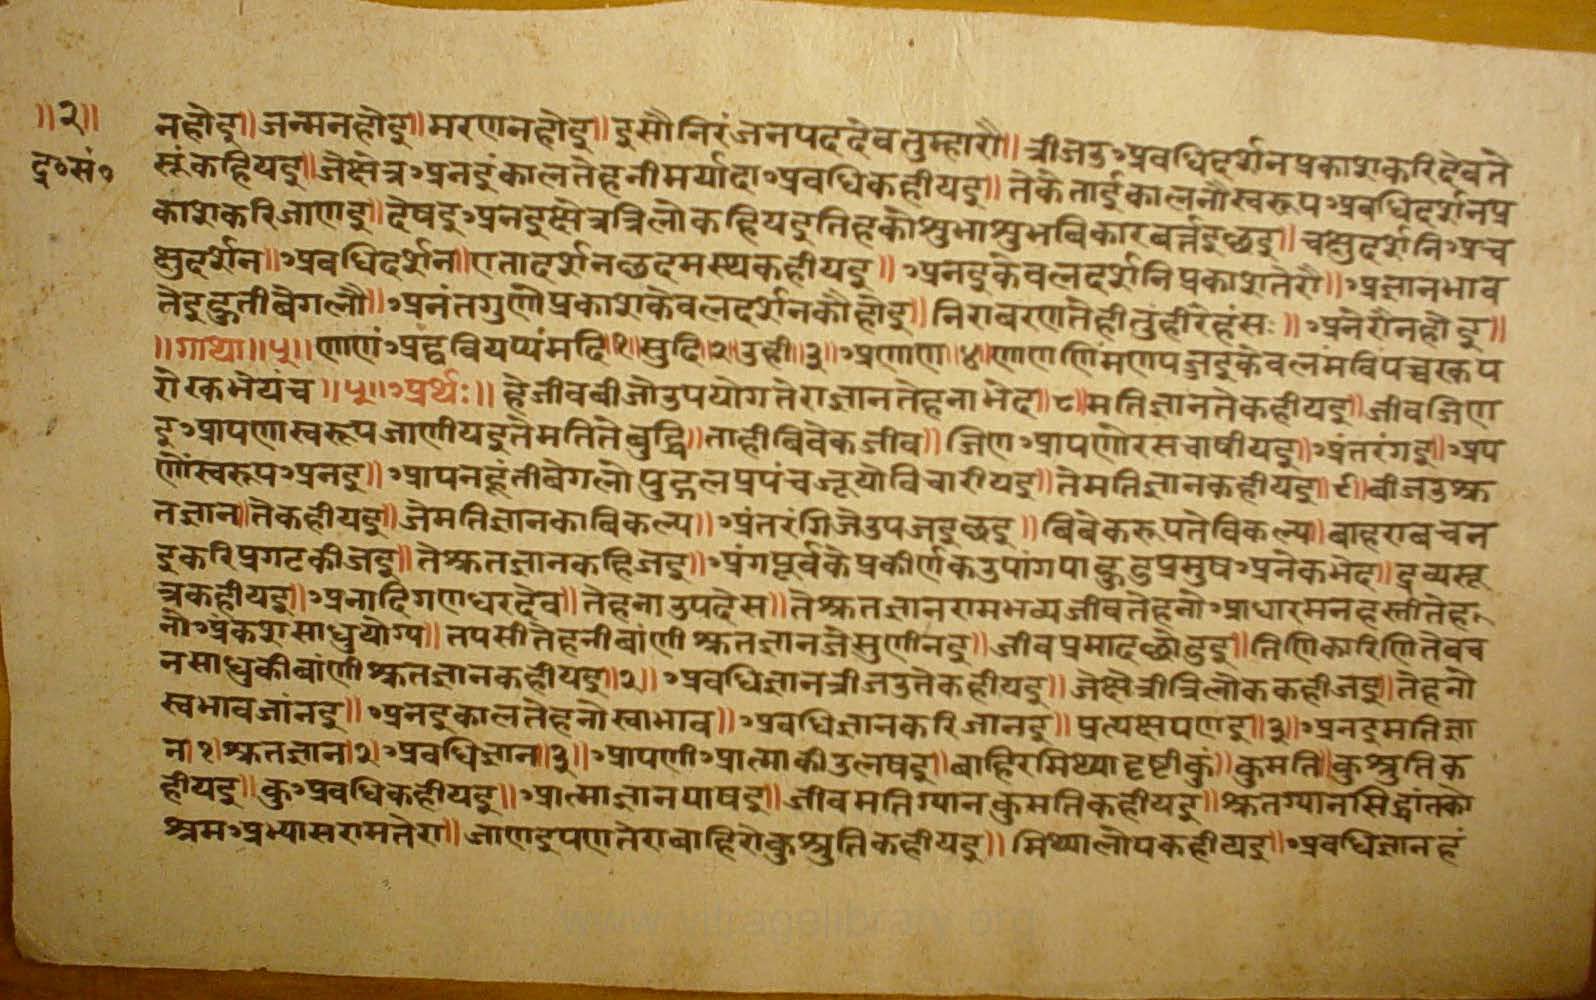 ॥२॥
द्र॰सं॰
नहोइ॥ जन्मनहोइ॥ मरणनहोइ॥ इसौनिरंजनपददेवतुम्हारौ॥ त्रीजउअवधिदर्शनप्रकाशकरिदेवते
सूंकहियइ॥ जेक्षेत्रअनइंकालतेहनीमर्यादाअवधिकहीयइ॥ तेकेताईकालनौस्वरूपअवधिदर्शनप्र
काशकरिजाणइ॥ देषइअनइक्षेत्रत्रिलोकहियइतिहकोशुभाशुभबिकारबर्त्तइछइ॥ चक्षुदर्शनिअच
क्षुदर्शन॥ अवधिदर्शन॥ एतादर्शनछदमस्थकहीयइ॥ अनइकेवलदर्शनिप्रकाशतेरौ॥ अज्ञानभाव
तेइहुतीबेगलौ॥ अनंतगुणोप्रकाशकेवलदर्शनकौहोइ॥ निराबरणतेहीतुंहीरेहंसः॥ अनेरौनहोइ॥
॥गाथा॥५॥ णाणंअट्ठवियप्पंमदि१सुदि२उही॥३॥ अणाण॥४॥णाणाणिंमणपज्जइकेवलंमविपच्चरकप
रोरकभेयंच॥५॥अर्थः॥ हेजीवबीजोउपयोगतेराज्ञानतेहनाभेद॥८॥मतिज्ञानतेकहीयइ॥ जीवजिणा
इआपणास्वरूपजाणीयइतेमतितेबुद्धि॥ ताहीबिवेकजीव॥ जिणआपणोरसचाषीयइ॥ अंतरंगइ॥ अप
णोंस्वरूपअनइ॥ आपनहूंतीबेगलोपुद्गलप्रपंचजूयोविचारीयइ॥ तेमतिज्ञानकहीयइ॥ ९॥बीजउश्रु
तज्ञान॥तेकहीयइ॥ जेमतिज्ञानकाबिकल्प॥ अंतरंगिजेउपजइछइ॥ बिबेकरूपतेविकल्प॥ बाहराबचन
इकरिप्रगटकीजइ॥ तेश्रुतज्ञानकहिजइ॥ अंगपूर्वकेप्रकीर्णकउपांगपाहुडप्रमुषअनेकभेद॥ द्रव्यसू
त्रकहीयइ॥ अनादिगणधरदेव॥ तेहनाउपदेस॥ तेश्रुतज्ञानरामभव्यजीवतेहनोआधारमनहस्तीतेह
नोअंकशसाधुयोग्य॥ तपसीतेहनीबांणीश्रुतज्ञानजेसुणीनइ॥ जीवप्रमादछोडइ॥ तिणिकारिणितेबच
नसाधुकीबांणीश्रुतज्ञानकहीयइ॥२॥ अवधिज्ञानत्रीजउतेकहीयइ॥ जेक्षेत्रीत्रिलोककहीजइ॥ तेहनो
स्वभावजांनइ॥ अनइकालतेहनोस्वाभाव॥ अवधिज्ञानकरिजानइ॥ प्रत्यक्षपणइ॥३॥अनइमतिज्ञा
न॥१॥श्रुतज्ञान॥२॥अवधिज्ञान॥३॥ आपणीआत्माकीउलषइ॥ बाहिरमिथ्यादृष्टीकुं॥ कुमति॥कुश्रुतिक
हीयइ॥ कुअवधिकहीयइ॥ आत्माज्ञानपाषइ॥ जीवमतिग्यानकुमतिकहीयइ॥ श्रुतग्यानसिद्धांतको
श्रमअभ्यासरामतेरा॥ जाणइपणतेराबाहिरोकुश्रुतिकहीयइ॥ मिथ्यालोपकहीयइ॥ अवधिज्ञानहं
www.vitragelibrary.org